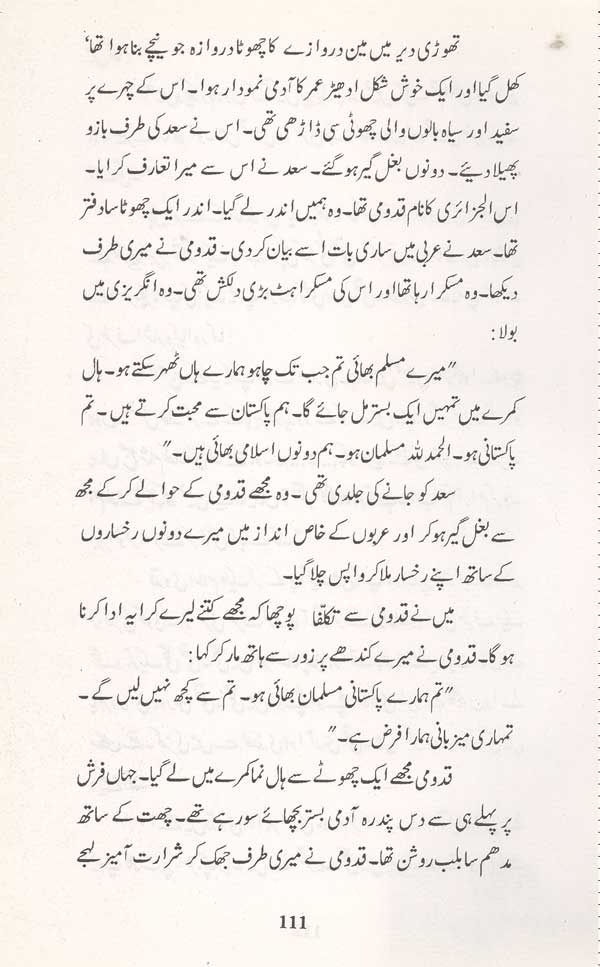 تھوڑی دیر میں مین دروازے کا چھوٹا دروازہ جو نیچے بنا ہوا تھا‘
کھل گیا اور ایک خوش شکل ادھیڑ عمر کا آدمی نمودار ہوا۔ اس کے چہرے پر
سفید اور سیاہ بالوں والی چھوٹی سی ڈاڑھی تھی۔ اس نے سعد کی طرف بازو
پھیلا دیئے۔ دونوں بغل گیر ہو گئے۔ سعد نے اس سے میرا تعارف کرایا۔
اس الجزائری کا نام قدومی تھا۔ وہ ہمیں اندر لے گیا۔ اندر ایک چھوٹا سا دفتر
تھا۔ سعد نے عربی میں ساری بات اسے بیان کر دی۔ قدومی نے میری طرف
دیکھا۔ وہ مسکرا رہا تھا اور اس کی مسکراہٹ بڑی دلکش تھی۔ وہ انگریزی میں
بولا :
”میرے مسلم بھائی تم جب تک چاہو ہمارے ہاں ٹھہر سکتے ہو۔ ہال
کمرے میں تمہیں ایک بستر مل جائے گا۔ ہم پاکستان سے محبت کرتے ہیں۔ تم
پاکستانی ہو۔ الحمد للہ مسلمان ہو۔ ہم دونوں اسلامی بھائی ہیں۔”
سعد کو جانے کی جلدی تھی۔ وہ مجھے قدومی کے حوالے کر کے مجھ
سے بغل گیر ہو کر اور عربوں کے خاص انداز میں میرے دونوں رخساروں
کے ساتھ اپنے رخسار ملا کر واپس چلا گیا۔
میں نے قدومی سے تکلفاً پوچھا کہ مجھے کتنے لیرے کرایہ ادا کرنا
ہو گا۔ قدومی نے میرے کندھے پر زور سے ہاتھ مار کر کہا :
”تم ہمارے پاکستانی مسلمان بھائی ہو۔ تم سے کچھ نہیں لیں گے۔
تمہاری میزبانی ہمارا فرض ہے۔”
قدومی مجھے ایک چھوٹے سے ہال نما کمرے میں لے گیا۔ جہاں فرش
پر پہلے ہی سے دس پندرہ آدمی بستر بچھائے سو رہے تھے۔ چھت کے ساتھ
مدھم سا بلب روشن تھا۔ قدومی نے میری طرف جھک کر شرارت آمیز لہجے
111